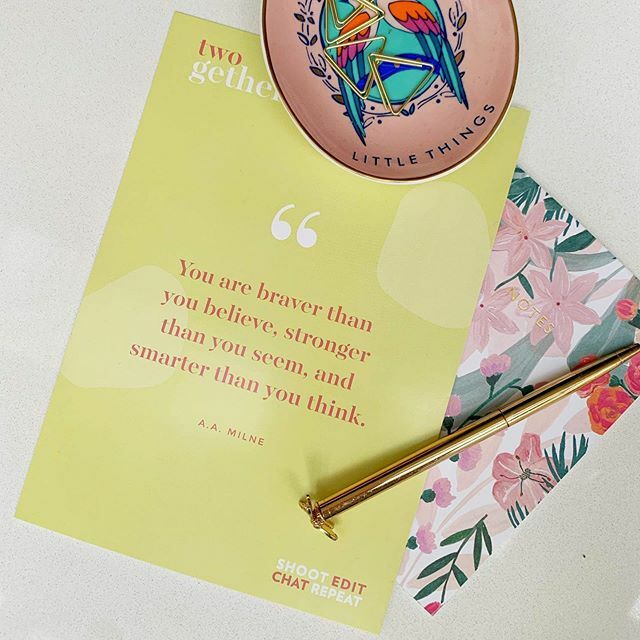 two
gether
LITTLE THINGS
“
You are braver than
you believe, stronger
than you seem, and
smarter than you think.
A.A. MILNE
NOTES
SHOOT EDIT
CHAT REPEAT